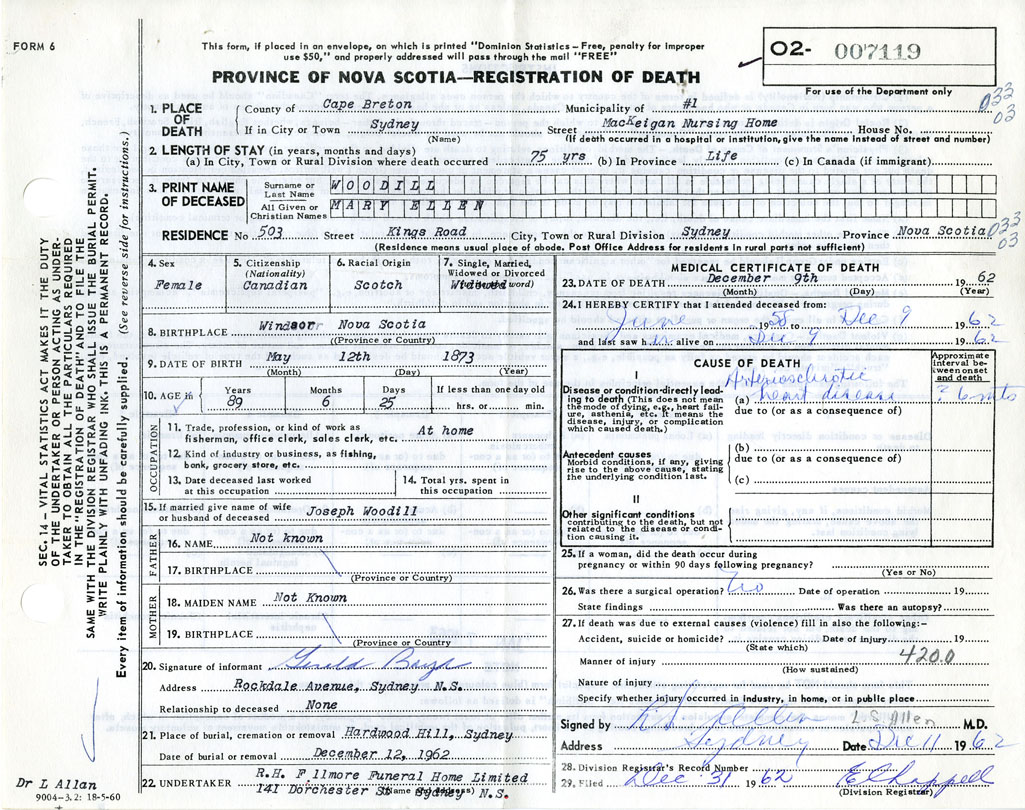 FORM 6
This form, if placed in an envelope, on which is printed "Dominion Statistics – Free, penalty for improper
use $50," and properly addressed will pass through the mail "FREE"
PROVINCE OF NOVA SCOTIA—REGISTRATION OF DEATH
O2- 007119
For use of the Department only
033
03
1. PLACE OF DEATH
County of Cape Breton Municipality of #1
If in City or Town Sydney Street MacKeigan Nursing Home House No.
(Name) (If death occurred in a hospital or institution, give the name instead of street and number)
2. LENGTH OF STAY (in years, months and days)
(a) In City, Town or Rural Division where death occurred 75 yrs (b) In Province Life (c) In Canada (if immigrant)
3. PRINT NAME OF DECEASED
Surname or Last Name WOODILL
All Given or Christian Names MARY ELLEN
RESIDENCE No 503 Street Kings Road City, Town or Rural Division Sydney Province Nova Scotia
033
03
(Residence means usual place of abode. Post Office Address for residents in rural parts not sufficient)
4. Sex
Female
5. Citizenship (Nationality)
Canadian
6. Racial Origin
Scotch
7. Single, Married, Widowed or Divorced
Widowed
8. BIRTHPLACE Windsor Nova Scotia
(Province or Country)
9. DATE OF BIRTH May 12th 1873
(Month) (Day) (Year)
10. AGE in Years 89 Months 6 Days 25 If less than one day old
hrs. or min.
OCCUPATION
11. Trade, profession, or kind of work as fisherman, office clerk, sales clerk, etc. At home
12. Kind of industry or business, as fishing, bank, grocery store, etc.
13. Date deceased last worked at this occupation
14. Total yrs. spent in this occupation
15. If married give name of wife or husband of deceased Joseph Woodill
FATHER
16. NAME Not known
17. BIRTHPLACE
(Province or Country)
MOTHER
18. MAIDEN NAME Not Known
19. BIRTHPLACE
(Province or Country)
20. Signature of informant Gerald
Address Rockdale Avenue, Sydney N.S.
Relationship to deceased None
21. Place of burial, cremation or removal Hardwood Hill, Sydney
Date of burial or removal December 12, 1962
22. UNDERTAKER R.H. Fillmore Funeral Home Limited
141 Dorchester St Sydney N.S.
MEDICAL CERTIFICATE OF DEATH
23. DATE OF DEATH December 9th 1962
(Month) (Day) (Year)
24. I HEREBY CERTIFY that I attended deceased from:
June 1958 to Dec 9 1962
and last saw h alive on Dec 9 1962
CAUSE OF DEATH
Approximate interval between onset and death
I
Disease or condition directly leading to death (This does not mean the mode of dying, e.g., heart failure, asthenia, etc. It means the disease, injury, or complication which caused death.)
(a) Arteriosclrotic heart disease ? 6 mts
due to (or as a consequence of)
Antecedent causes
Morbid conditions, if any, giving rise to the above cause, stating the underlying condition last.
(b)
due to (or as a consequence of)
(c)
II
Other significant conditions
contributing to the death, but not related to the disease or condition causing it.
25. If a woman, did the death occur during
pregnancy or within 90 days following pregnancy?
(Yes or No)
26. Was there a surgical operation? No Date of operation 19
State findings Was there an autopsy?
27. If death was due to external causes (violence) fill in also the following:-
Accident, suicide or homicide? Date of injury 19
(State which)
420.0
Manner of injury
(How sustained)
Nature of injury
Specify whether injury occurred in industry, in home, or in public place
Signed by L S Allen L.S. Allen M.D.
Address Sydney Date Dec 11 1962
28. Division Registrar's Record Number
29. Filed Dec 31 1962 E Chappell
(Division Registrar)
SEC. 14 – VITAL STATISTICS ACT MAKES IT THE DUTY
OF THE UNDERTAKER OR PERSON ACTING AS UNDER-
TAKER TO OBTAIN ALL THE PARTICULARS REQUIRED
IN THE "REGISTRATION OF DEATH" AND TO FILE THE
SAME WITH THE DIVISION REGISTRAR WHO SHALL ISSUE THE BURIAL PERMIT.
WRITE PLAINLY WITH UNFADING INK. THIS IS A PERMANENT RECORD.
Every item of information should be carefully supplied. (See reverse side for instructions.)
Dr L Allan
9004-3.2: 18-5-60